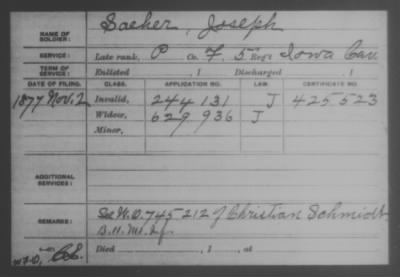 NAME OF SOLDIER: Sacker, Joseph
SERVICE: Late rank, P Co. F, 5 Reg't Iowa Cav
TERM OF SERVICE: Enlisted , 1 Discharged , 1
DATE OF FILING. CLASS. APPLICATION NO. LAW. CERTIFICATE NO.
1877 Nov. 2 Invalid, 244 131 J 425523
Widow, 629 936 J
Minor,
ADDITIONAL SERVICES:
REMARKS: See W.O. 745212 of Christian Schmidt
B. 11. Mo. Inf.
Died , 1 , at